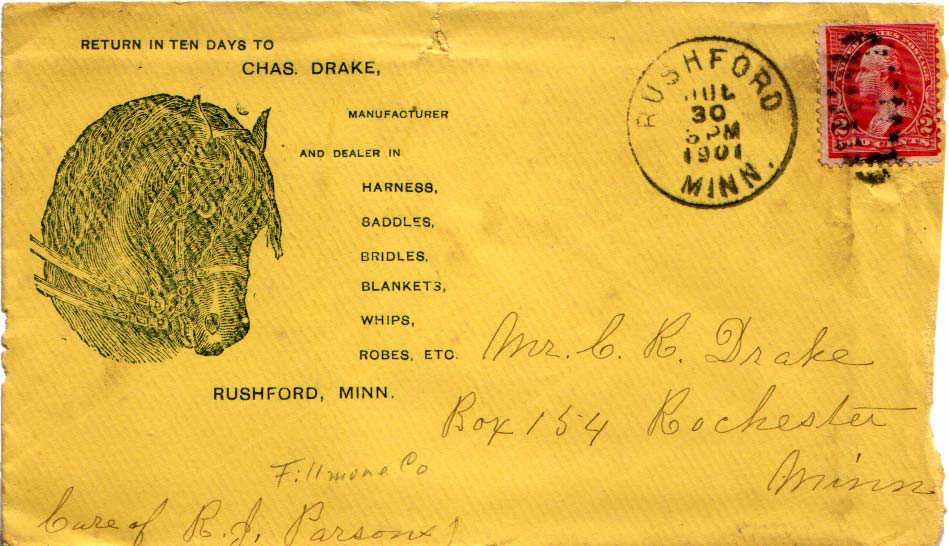 RETURN IN TEN DAYS TO
CHAS. DRAKE,
MANUFACTURER
AND DEALER IN
HARNESS,
SADDLES,
BRIDLES,
BLANKETS,
WHIPS,
ROBES, ETC.
RUSHFORD, MINN.
RUSHFORD
JUL
30
PM
1901
MINN.
UNITED STATES POSTAGE
2 2
TWO CENTS
Mr. C. R. Drake
Box 154 Rochester
Minn
Fillmore Co
Care of R. J. Parsons